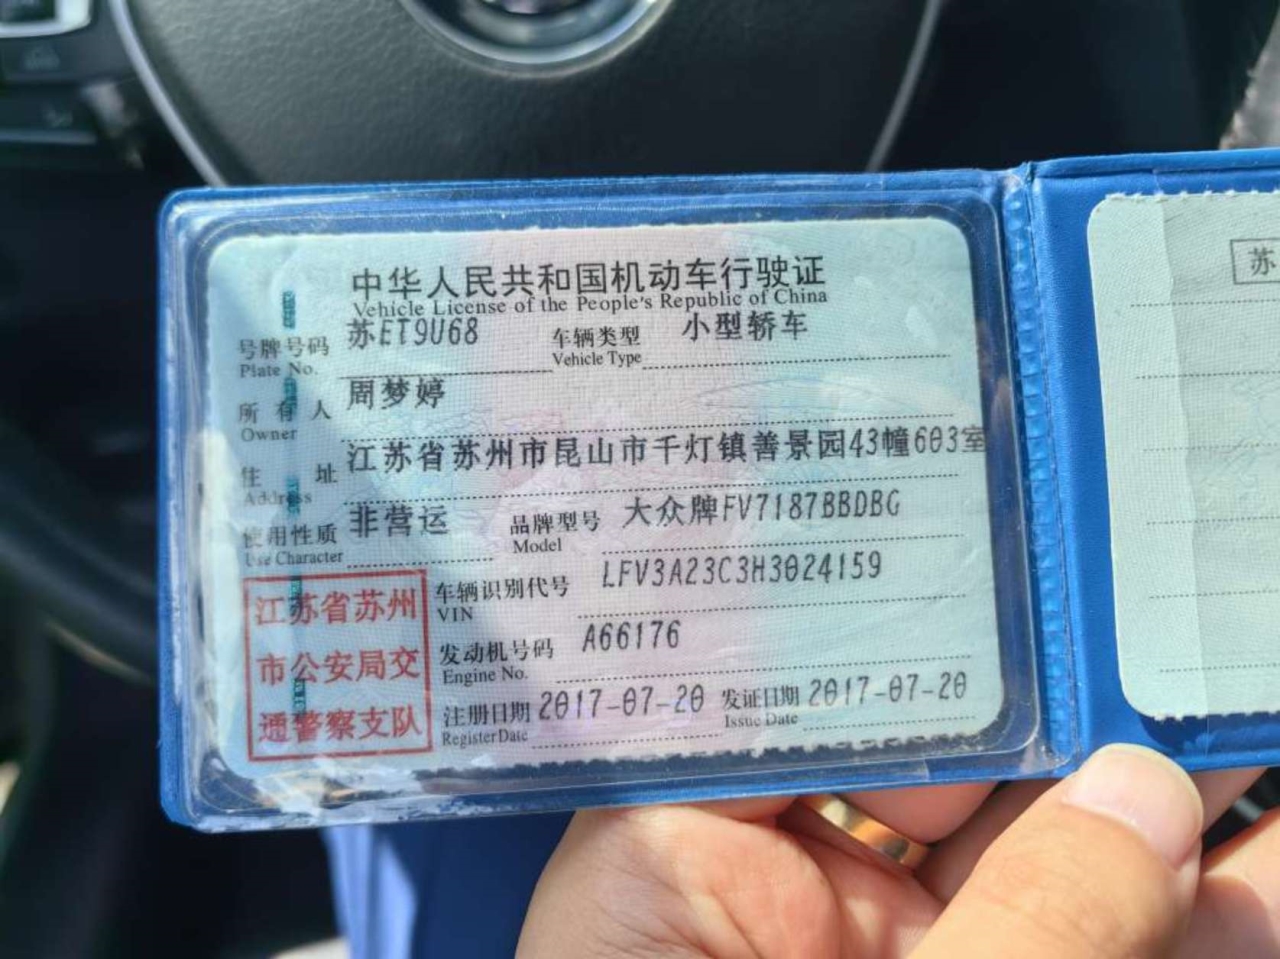 中华人民共和国机动车行驶证
Vehicle License of the People's Republic of China
号牌号码 苏ET9U68 车辆类型 小型轿车
Plate No. Vehicle Type
所有人 周梦婷
Owner
住址 江苏省苏州市昆山市千灯镇善景园43幢603室
Address
使用性质 非营运 品牌型号 大众牌FV7187BBDBG
Use Character Model
车辆识别代号 LFV3A23C3H3024159
VIN
发动机号码 A66176
Engine No.
注册日期 2017-07-20 发证日期 2017-07-20
Register Date Issue Date
江苏省苏州
市公安局交
通警察支队
苏